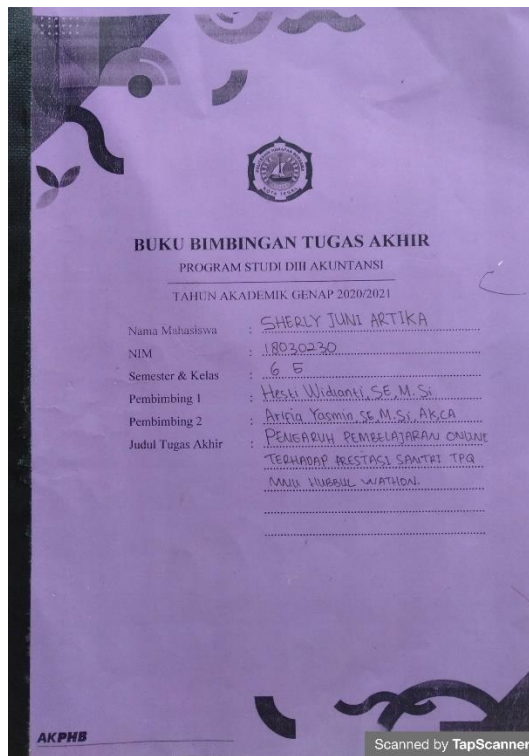 BUKU BIMBINGAN TUGAS AKHIR
PROGRAM STUDI DIII AKUNTANSI
TAHUN AKADEMIK GENAP 2020/2021
Nama Mahasiswa : SHERLY JUNI ARTIKA
NIM : 18030230
Semester & Kelas : 6 E
Pembimbing 1 : Hesti Widianti, SE, M.Si
Pembimbing 2 : Arifia Yasmin, SE, M.Si, AK, CA
Judul Tugas Akhir : PENGARUH PEMBELAJARAN ONLINE
TERHADAP PRESTASI SANTRI TPQ
MNU HUBBUL WATHON.
AKPHB
Scanned by TapScanner